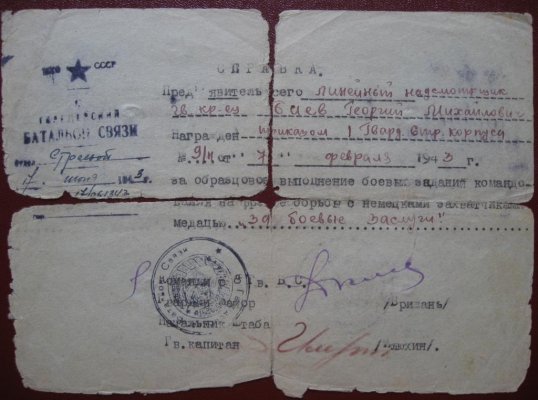 НКО СССР
ГВАРДЕЙСКИЙ
БАТАЛЬОН СВЯЗИ
Строевой
7 июня 1943 г.
СПРАВКА.
Предъявитель сего линейный надсмотрщик
гв. кр-ец Георгий Михайлович
награжден приказом 1 Гвард. Стр. Корпуса
№ 9/н от " 7 " февраля 1943 г.
за образцовое выполнение боевых заданий командо-
вания на фронте борьбы с немецкими захватчиками
медалью „За боевые заслуги"
Командир Гв. Б.С.
Гвардии майор /Бризань/
Начальник Штаба
Гв. капитан